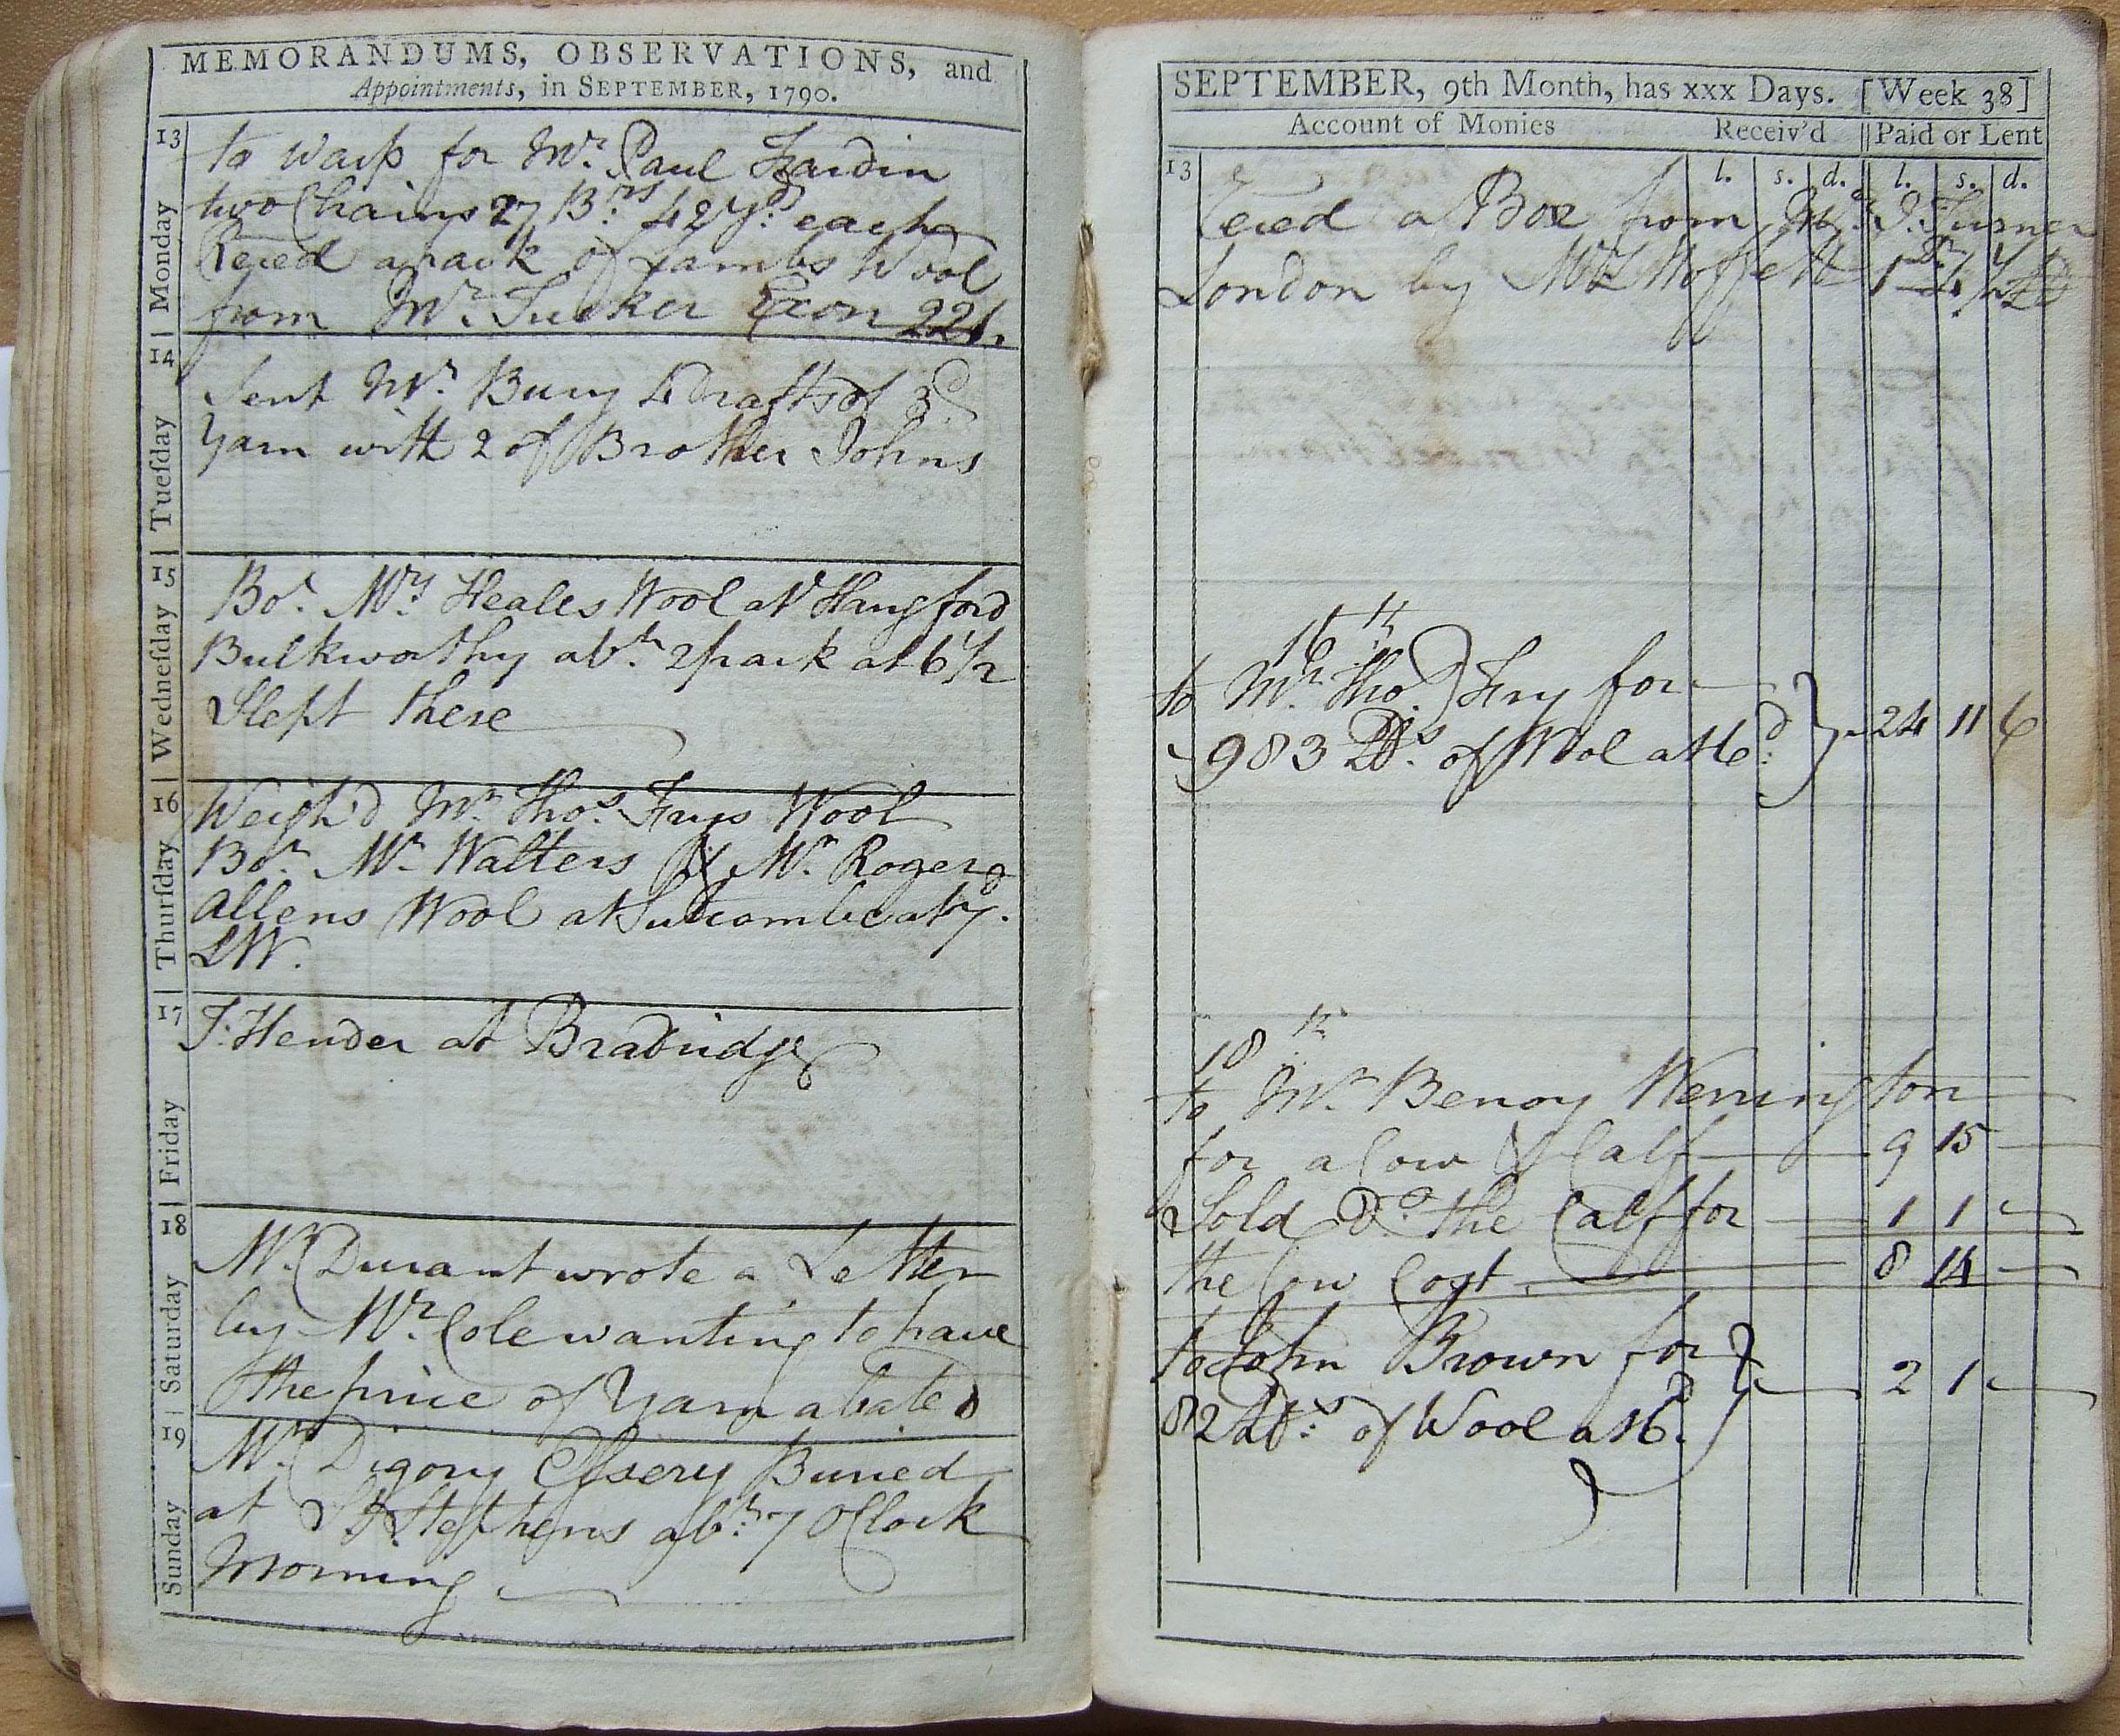 MEMORANDUMS, OBSERVATIONS, and
Appointments, in SEPTEMBER, 1790.
13
Monday
to warp for Mr. Paul Fardin
two Chains 27 Brs. 42 Yds. each
Recd a pack of Lambs Wool
from Mr. Tucker Exon 22l.
14
Tueſday
Sent Mr. Bury 4 Drafts of 3d.
Yarn with 2 of Brother Johns
15
Wedneſday
Bot. Mrs. Heales Wool at Hangford
Bulkworthy abt. 2 pack at 6 1/2
Slept there
16
Thurſday
Weigh'd Mr. Thos. Frys Wool
Bot. Mr. Walters & Mr. Roger
Allens Wool at Sutcombe at 7d.
SW.
17
Friday
J. Hender at Bradridge
18
Saturday
Mr. Durant wrote a Letter
by Mr. Cole wanting to have
the price of Yarn abated
19
Sunday
Mr. Digory Essery Buried
at St. Stephens abt. 7 OClock
Morning
SEPTEMBER, 9th Month, has xxx Days. [Week 38]
Account of Monies Receiv'd Paid or Lent
13 l. s. d. l. s. d.
Recd a Box from Mr. J. Turner
London by Mrs. Moffett
16th
to Mr. Thos. Fry for
983 lbs. of Wool at 6d. 24 11 6
18th
to Mr. Benoy Werrington
for a Cow & Calf 9 15
Sold Do. the Calf for 1 1
the Cow Cost 8 14
to John Brown for
82 lbs. of Wool at 6d. 2 1